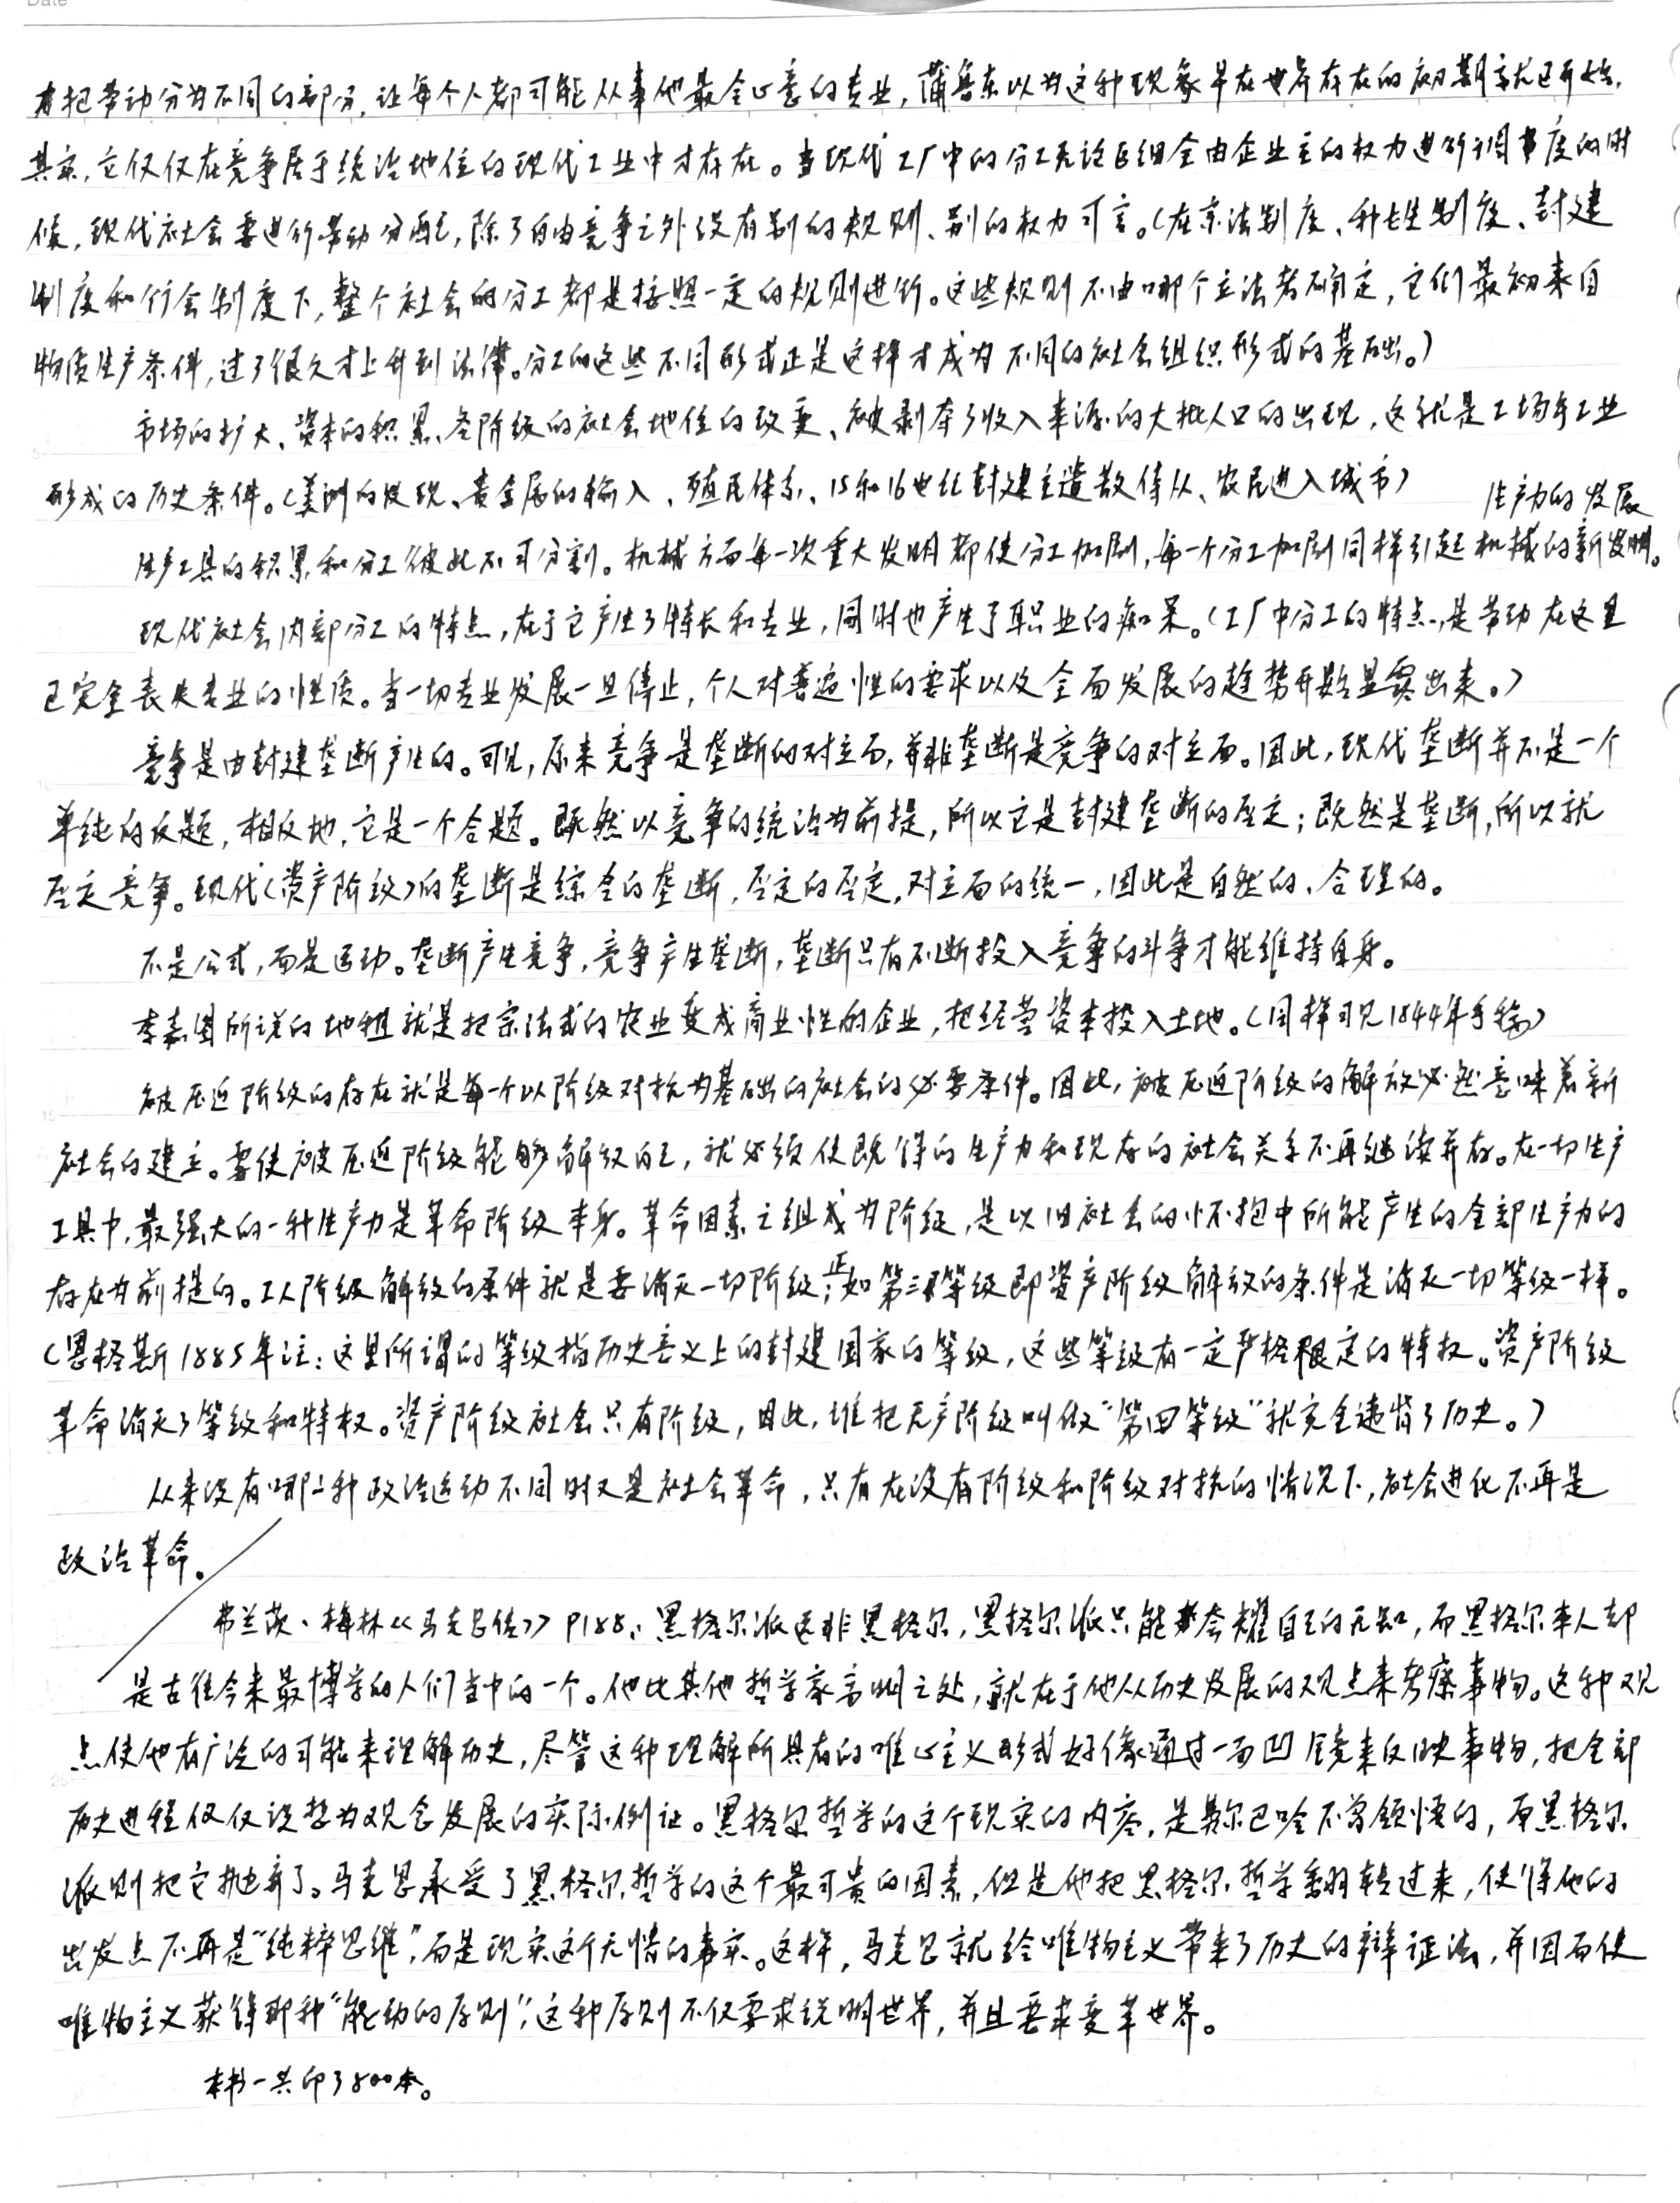 Date
把劳动分为不同的部分,让每个人都可能从事他最合心意的专业,蒲鲁东以为这种现象早在世界存在的初期就已开始.
其实,它仅仅在竞争居于统治地位的现代工业中才存在。当现代工厂中的分工无论巨细全由企业主的权力进行调度的时
候,现代社会要进行劳动分配,除了自由竞争之外没有别的规则、别的权力可言。(在宗法制度、种姓制度、封建
制度和行会制度下,整个社会的分工都是按照一定的规则进行。这些规则不由哪个立法者确定,它们最初来自
物质生产条件,过了很久才上升到法律。分工的这些不同形式正是这样才成为不同的社会组织形式的基础。)
市场的扩大、资本的积累、各阶级的社会地位的改变、被剥夺了收入来源的大批人口的出现,这就是工场手工业
形成的历史条件。(美洲的发现、贵金属的输入、殖民体系、15和16世纪封建主遣散侍从、农民进入城市)
生产力的发展
生产工具的积累,和分工彼此不可分割。机械方面每一次重大发明都使分工加剧,每一个分工加剧同样引起机械的新发明。
现代社会内部分工的特点,在于它产生了特长和专业,同时也产生了职业的痴呆。(工厂中分工的特点,是劳动在这里
已完全丧失专业的性质。当一切专业发展一旦停止,个人对普遍性的要求以及全面发展的趋势开始显露出来。)
竞争是由封建垄断产生的。可见,原来竞争是垄断的对立面,并非垄断是竞争的对立面。因此,现代垄断并不是一个
单纯的反题,相反地,它是一个合题。既然以竞争的统治为前提,所以它是封建垄断的否定;既然是垄断,所以就
否定竞争。现代(资产阶级)的垄断是综合的垄断,否定的否定,对立面的统一,因此是自然的、合理的。
不是公式,而是运动。垄断产生竞争,竞争产生垄断,垄断只有不断投入竞争的斗争才能维持自身。
李嘉图所说的地租就是把宗法式的农业变成商业性的企业,把经营资本投入土地。(同样可见1844年手稿)
被压迫阶级的存在就是每一个以阶级对抗为基础的社会的必要条件。因此,被压迫阶级的解放必然意味着新
社会的建立。要使被压迫阶级能够解放自己,就必须使既得的生产力和现存的社会关系不再继续并存。在一切生产
工具中,最强大的一种生产力是革命阶级本身。革命因素之组成为阶级,是以旧社会的怀抱中所能产生的全部生产力的
存在为前提的。工人阶级解放的条件就是要消灭一切阶级;正如第三等级即资产阶级解放的条件是消灭一切等级一样。
(恩格斯1885年注:这里所谓的等级指历史意义上的封建国家的等级,这些等级有一定严格限定的特权。资产阶级
革命消灭了等级和特权。资产阶级社会只有阶级,因此,谁把无产阶级叫做“第四等级”就完全违背了历史。)
从来没有哪一种政治运动不同时又是社会革命,只有在没有阶级和阶级对抗的情况下,社会进化不再是
政治革命。
弗兰茨·梅林《马克思传》P188:黑格尔派远非黑格尔,黑格尔派只能夸耀自己的无知,而黑格尔本人却
是古往今来最博学的人们当中的一个。他比其他哲学家高明之处,就在于他从历史发展的观点来考察事物。这种观
点使他有广泛的可能来理解历史,尽管这种理解所具有的唯心主义形式好像通过一面凹镜来反映事物,把全部
历史进程仅仅设想为观念发展的实际例证。黑格尔哲学的这个现实的内容,是费尔巴哈不曾领悟的,而黑格尔
派则把它抛弃了。马克思承受了黑格尔哲学的这个最可贵的因素,但是他把黑格尔哲学翻转过来,使得他的
出发点不再是“纯粹思维”,而是现实这个无情的事实。这样,马克思就给唯物主义带来了历史的辩证法,并因而使
唯物主义获得那种“能动的原则”,这种原则不仅要求说明世界,并且要求变革世界。
本书一共印了800本。